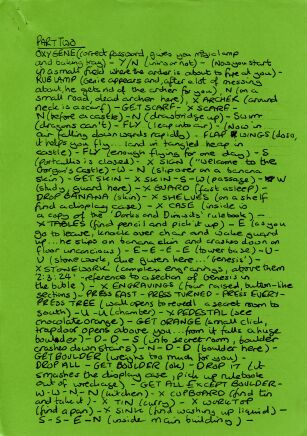 PART TWO
OXYGENE (correct password, gives you magic lamp
and car key) - Y/N (win or not) - (Now you start
in a small field where the archer is about to fire at you) -
RUB LAMP (genie appears and, after a lot of messing
about, he gets rid of the archer for you), N (on a
small road, dead archer here), X ARCHER (around
neck is a scarf) - GET SCARF - X SCARF -
N (before a castle) - N (drawbridge up) - SWIM
(dragons can't) - FLY (leap into air) - (Now in
air falling downwards rapidly) - FLAP WINGS (does,
it helps you fly... land in tangled heap in
castle) - FLY (enough flying for one day) - S
(portcullis is closed) - X SIGN ("Welcome to the
Gorgo's Castle) - W - N (slip over on a banana
skin) - GET SKIN - X SKIN - S - W (passage) - W
(study, guard here) - X GUARD (fast asleep) -
DROP BANANA (skin) - X SHELVES (on a shelf
find a display case) - X CASE (inside is
a copy of the 'Dorks and Dimwits' rulebook) -
X TABLES (find pencil and pick it up) - E (as you
go to leave, knock over chair and wake guard
up... he slips on banana skin and crashes down on
floor unconscious) - E - E - E - E (tower base) - U -
U (stonework, clue given here... 'Genesis') -
X STONEWORK (complex engravings, above them
'2:3:24' - reference to a section of Genesis in
the bible) - X ENGRAVINGS (four raised button-like
sections) - PRESS EAST - PRESS TURNED - PRESS EVERY -
PRESS TREE (wall opens to reveal a secret room to
south) - U - U (chamber) - X PEDESTAL (see
chocolate orange) - GET ORANGE (small click,
trapdoor opens above you... from it falls a huge
boulder) - D - D - S (into secret room, boulder
crashed downstairs) - N - D - D (boulder here) -
GET BOULDER (weighs too much for you) -
DROP ALL - GET BOULDER (ok) - DROP IT (it
smashes the display case, pick up rulebook
out of wreckage) - GET ALL EXCEPT BOULDER -
W - W - N - N (kitchen) - X CUPBOARD (find tin
and take it) - X TIN (curry) - X WORKTOP
(find a pan) - X SINK (find washing up liquid) -
S - S - E - N (inside main building) -